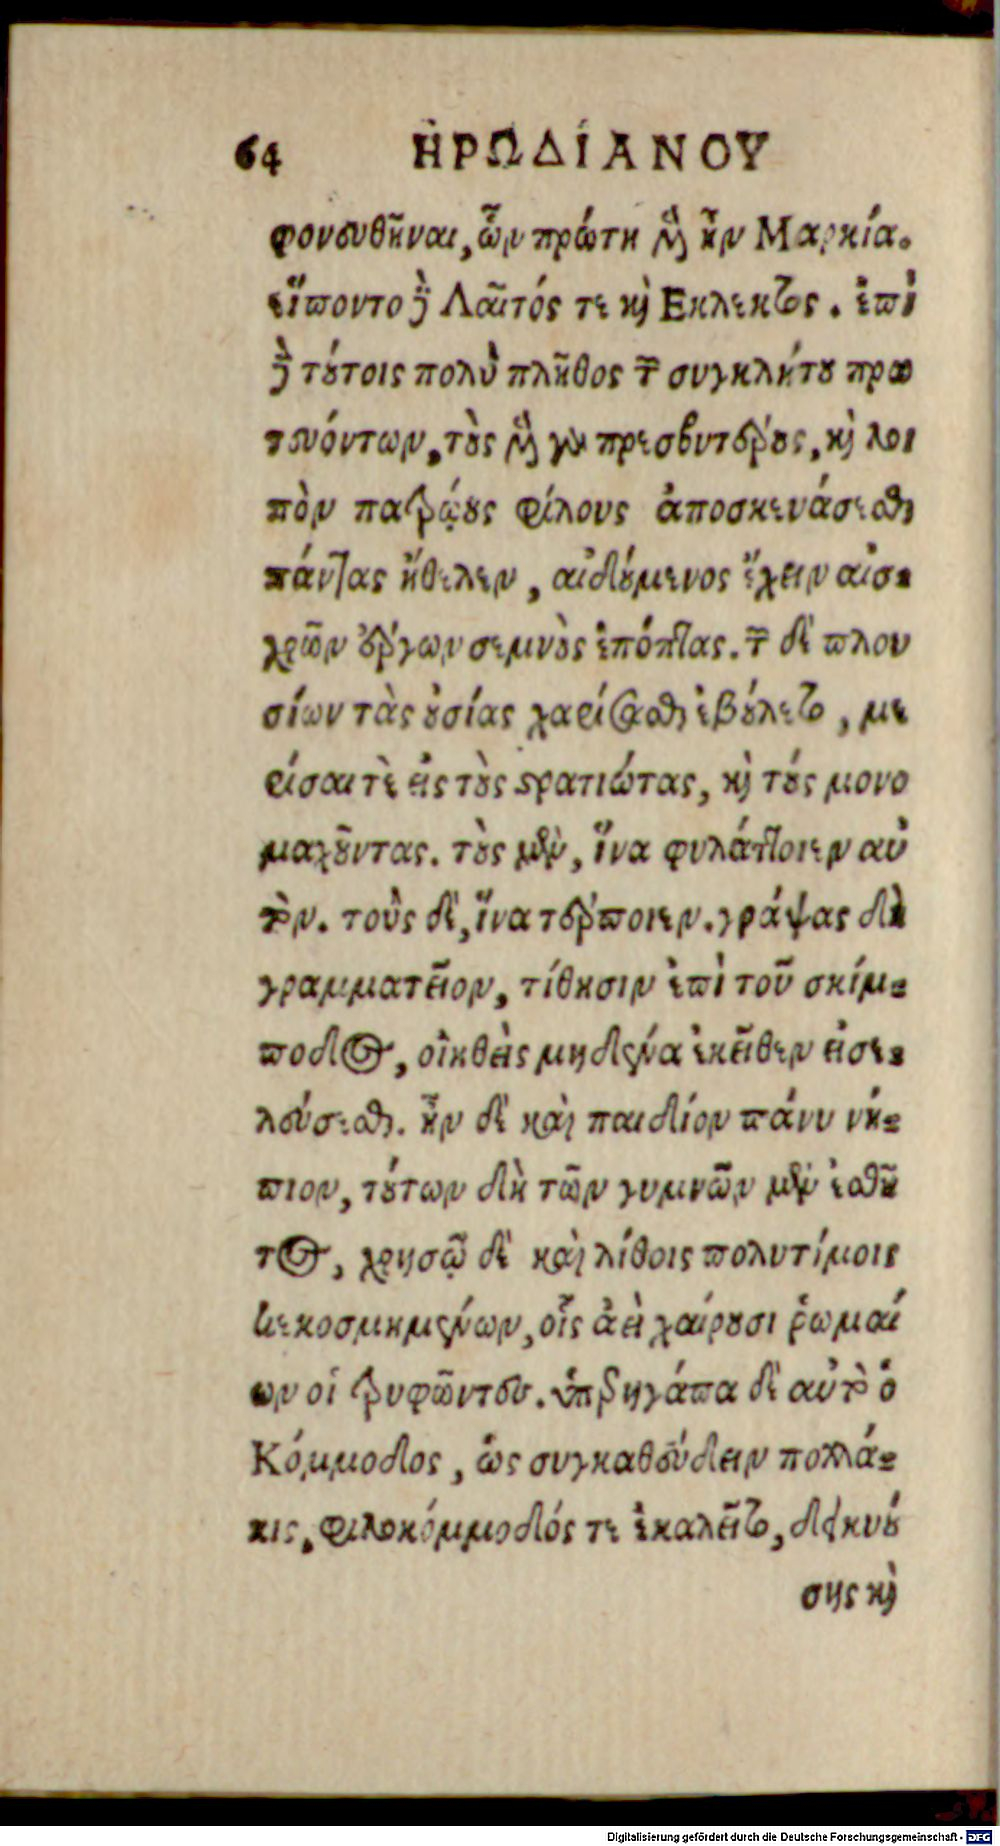 64 ΗΡΩΔΙΑΝΟΥ
φονευθῆναι, ὧν πρώτη μὲν ἦν Μαρκία.
εἵποντο δὲ Λαῖτός τε καὶ Εκλεκτος. ἐπὶ
δὲ τούτοις πολὺ πλῆθος τῶν συγκλήτου πρω
τευόντων, τοὺς μὲν γὰρ πρεσβυτέρους, καὶ λοι
πὸν πατρῴους φίλους ἀποσκευάσεσθαι
πάντας ἤθελεν, αἰδούμενος ἔχειν αἰσ-
χρῶν ἔργων σεμνοὺς ἐπόπτας. τῶν δὲ πλου
σίων τὰς οὐσίας χαρίσασθαι ἐβούλετο, με
ρίσαι τὲ εἰς τοὺς στρατιώτας, καὶ τούς μονο
μαχοῦντας. τοὺς μὲν, ἵνα φυλάττοιεν αὐ
τὸν. τοὺς δὲ, ἵνα τέρποιεν. γράψας δὴ
γραμματεῖον, τίθησιν ἐπὶ τοῦ σκίμ-
ποδος, οἰηθεὶς μηδένα ἐκεῖθεν εἰσε-
λεύσεσθαι. ἦν δὲ καὶ παιδίον πάνυ νή-
πιον, τούτων δὴ τῶν γυμνῶν μὲν ἐσθῆ
τος, χρυσῷ δὲ καὶ λίθοις πολυτίμοις
κεκοσμημένων, οἷς ἀεὶ χαίρουσι ῥωμαί
ων οἱ τρυφῶντες. ὑπερηγάπα δὲ αὐτὸ ὁ
Κόμμοδος, ὡς συγκαθεύδειν πολλά-
κις, φιλοκόμμοδός τε ἐκαλεῖτο, δεικνυού
σης καὶ
Digitalisierung gefördert durch die Deutsche Forschungsgemeinschaft - DFG